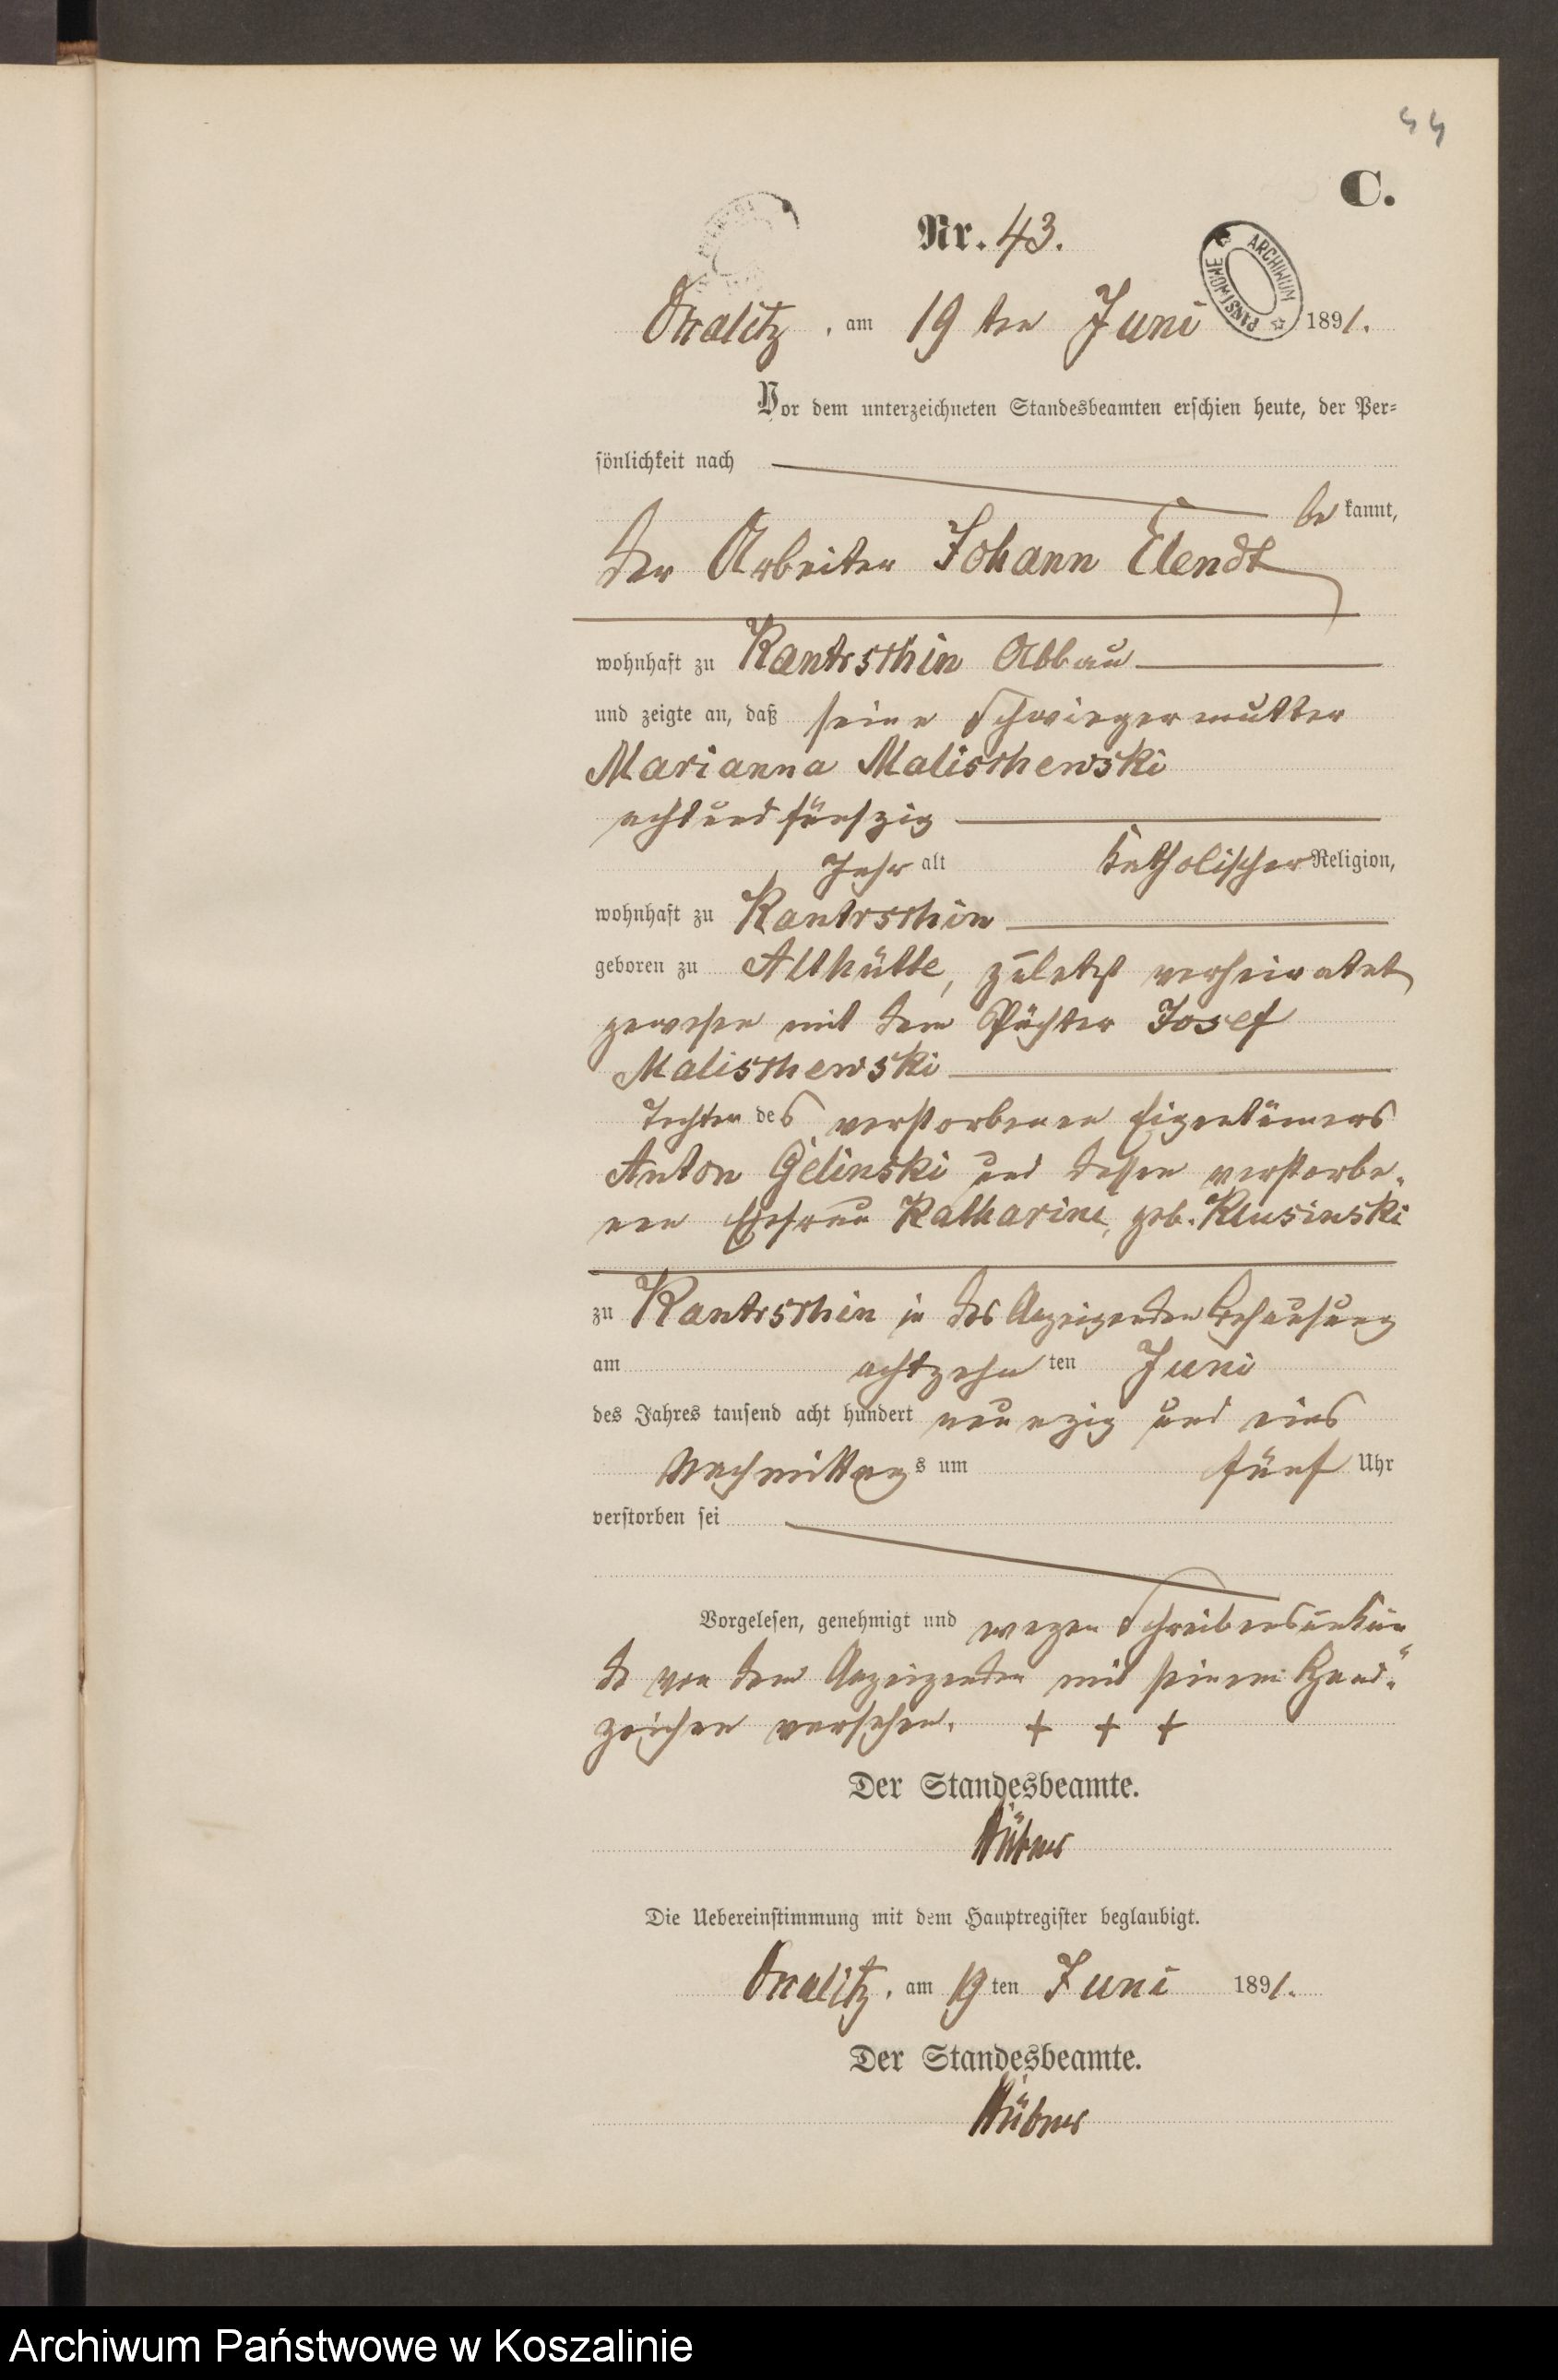 44
C.
Nr. 43.
ARCHIWUM PAŃSTWOWE
Oralitz, am 19 ten Juni 1891.
Vor dem unterzeichneten Standesbeamten erschien heute, der Per-
sönlichkeit nach
bekannt,
der Arbeiter Johann Elendt
wohnhaft zu Kantrschin Abbau
und zeigte an, daß seine Schwiegermutter
Marianna Malischewski
achtundfünfzig
Jahr alt katholischer Religion,
wohnhaft zu Kantrschin
geboren zu Althütte, zuletzt verheiratet
gewesen mit dem Pächter Josef
Malischewski
Tochter des verstorbenen Eigentümers
Anton Gelinski und dessen verstorbe-
nen Ehefrau Katharine, geb. Klusinski
zu Kantrschin in des Anzeigenden Behausung
am achtzehnten Juni
des Jahres tausend acht hundert neunzig und eins
Nachmittags um fünf Uhr
verstorben sei
Vorgelesen, genehmigt und wegen Schreibensunkun
de von dem Anzeigenden mit seinem Hand-
zeichen versehen. + + +
Der Standesbeamte.
Hübner
Die Uebereinstimmung mit dem Hauptregister beglaubigt.
Oralitz, am 19ten Juni 1891.
Der Standesbeamte.
Hübner
Archiwum Państwowe w Koszalinie